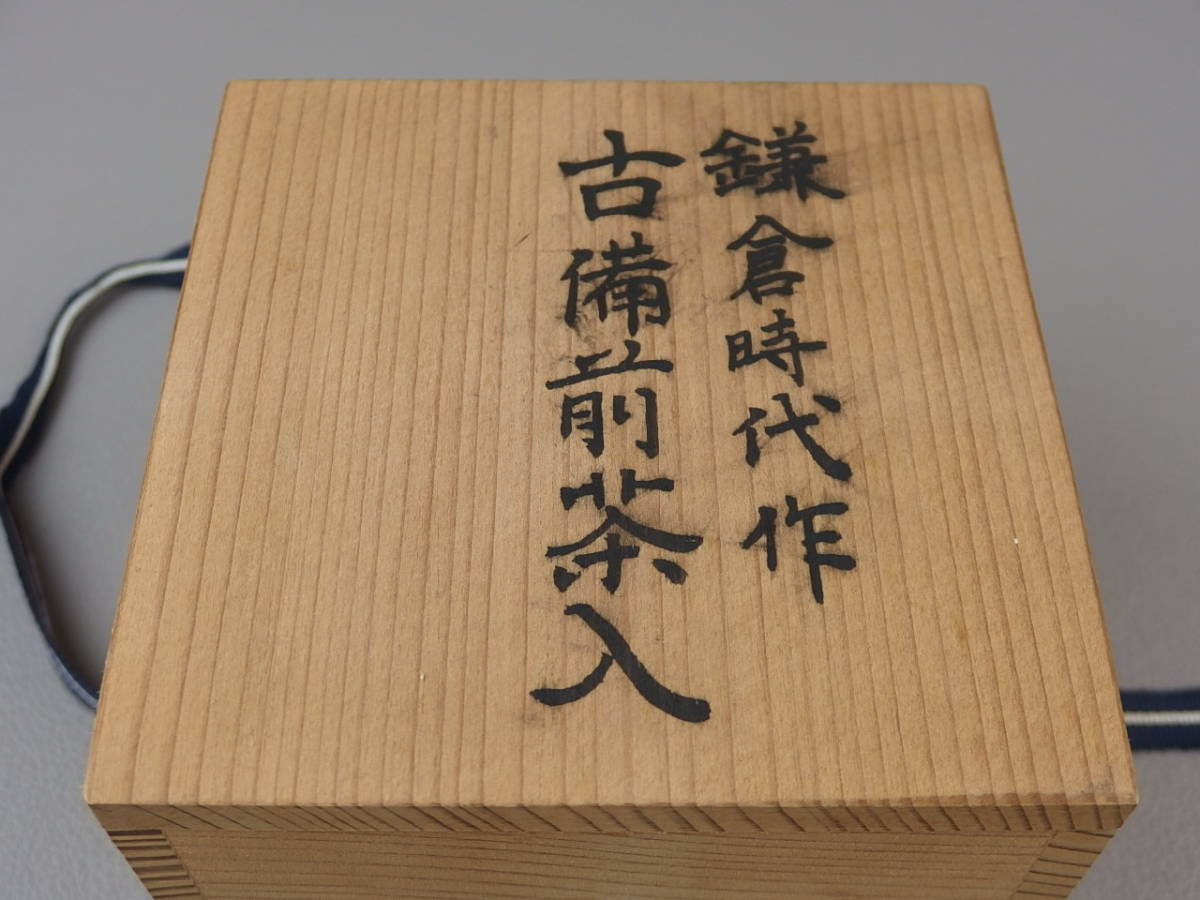 鎌倉時代作
古備前茶入